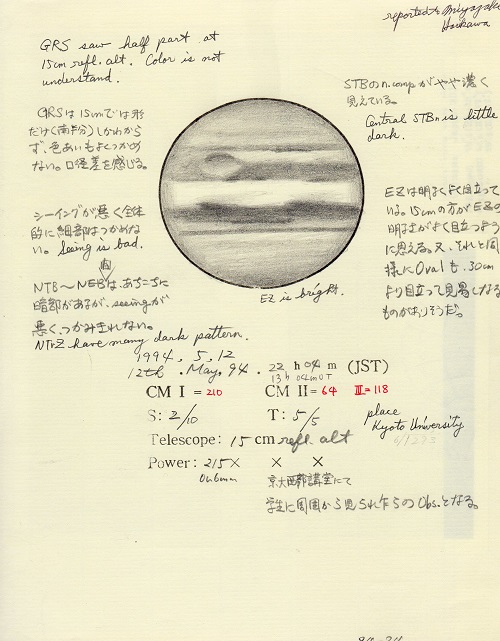 reported to Miyazaki
GRS saw half part at
15cm refl. alt. Color is not
understand.
STBのn.compがやや濃く
見えている。
Central STBn is little
dark.
GRSは15cmでは形
だけ(南半分)しかわから
ず、色あいもよくつかめ
ない。口径差を感じる。
シーイングが悪く全体
的に細部はつかめな
い。Seeing is bad.
EZは明るくよく目立って
いる。15cmの方がEZの
明るさがよく目立つよう
に思える。又、それと同
様にOvalも、30cm
より目立って見易くなる
ものがありそうだ。
NTB〜NEB間はあちこちに
暗部があるが、seeingが
悪く、つかみきれない。
NTrZ have many dark pattern.
EZ is bright.
1994 . 5. 12
12th . May. 94 . 22 h 04 m (JST)
13h 04m UT
CM I = 210 CM II = 64 III = 118
S: 2/10 T: 5/5
place
Kyoto University
Telescope: 15 cm refl. alt
Power: 215× × ×
Or6mm
学生に周囲から見られ乍らのObs.となる。